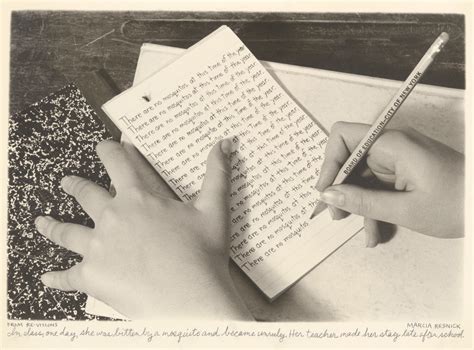 There are no mosquitos at this time of the year.
There are no mosquitos at this time of the year.
There are no mosquitos at this time of the year.
There are no mosquitos at this time of the year.
There are no mosquitos at this time of the year.
There are no mosquitos at this time of the year.
There are no mosquitos at this time of the year.
are no mosquitos at this time of the year.
are no mosquitos at this time of the year.
There are no mosquitos at this time
There are no mosquitos at this
There are no mosquitos
There are no
BOARD OF EDUCATION·CITY OF NEW YORK
FROM RE-VISIONS
MARCIA RESNICK
In class, one day, she was bitten by a mosquito and became unruly. Her teacher made her stay late after school